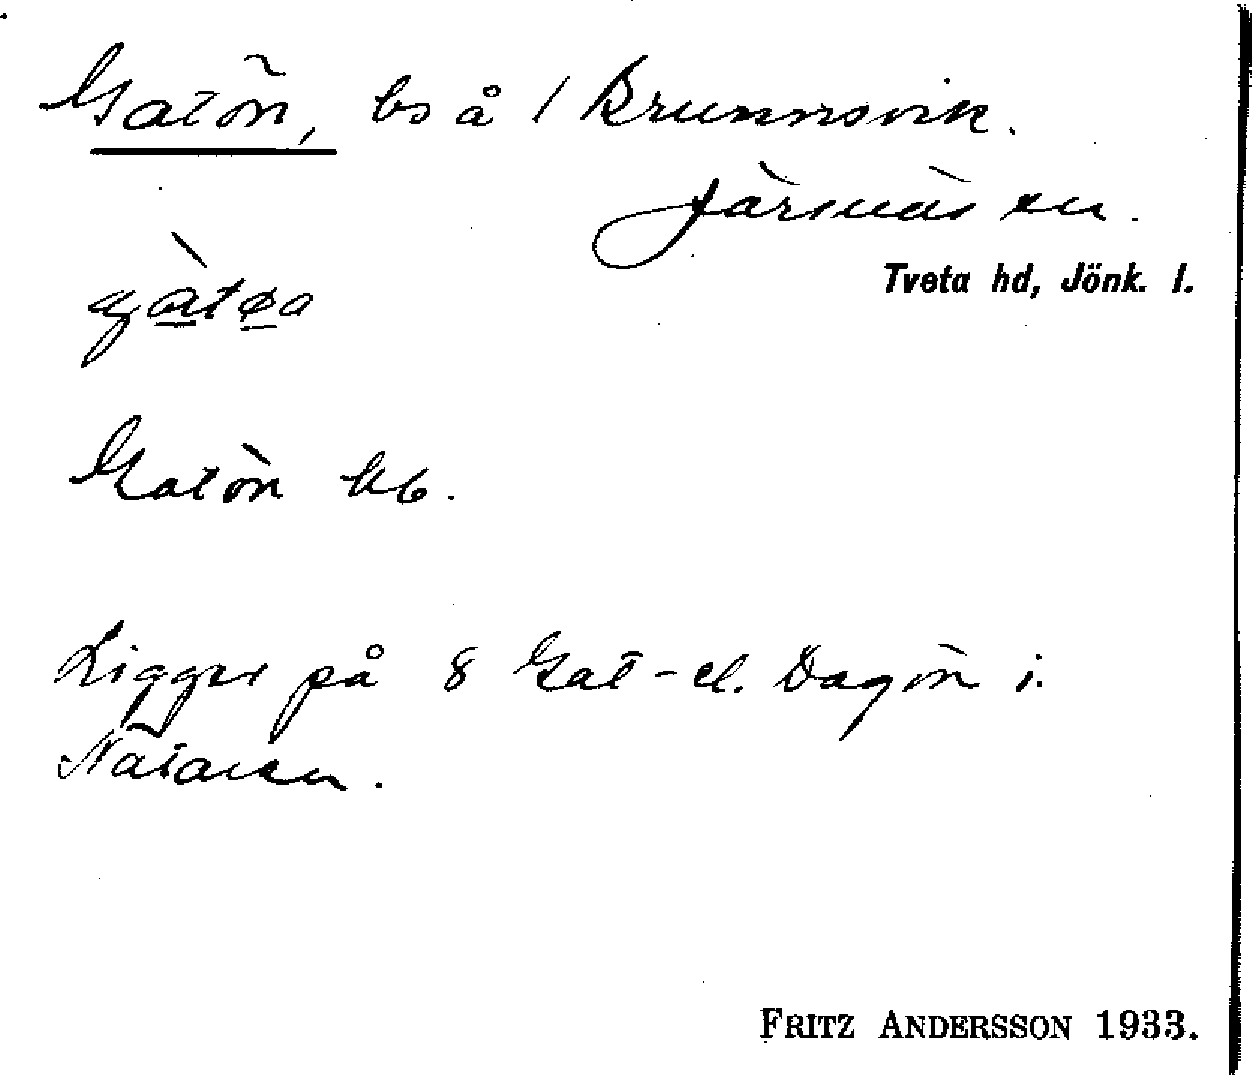 Gatön, bs å 1 Brunnsvik.
Järsnäs sn.
Tveta hd, Jönk. l.
Gatön kb.
Ligger på ö Gat- el. Dagön i
Nätaren.
FRITZ ANDERSSON 1933.